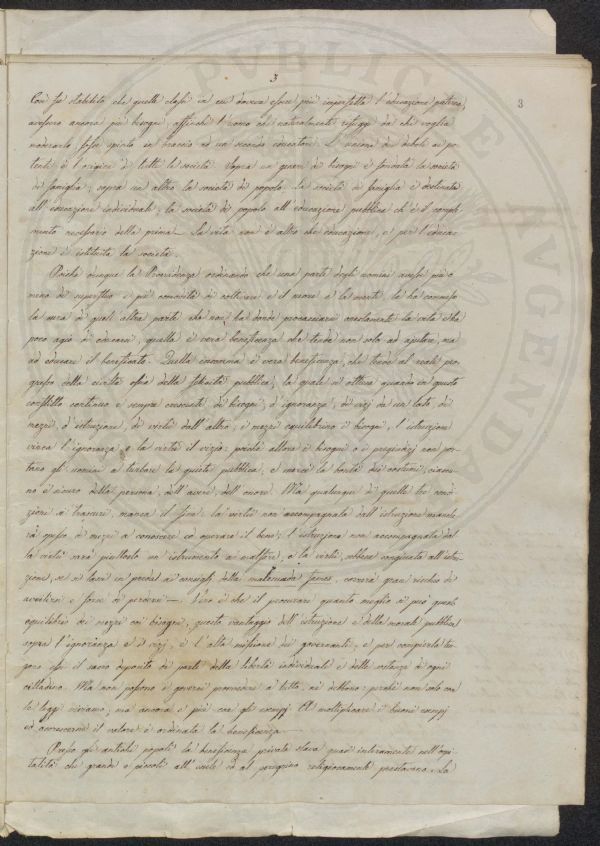 3
3
Così fu stabilito che quelle classi in cui doveva essere più imperfetta l'educazione paterna,
avessero ancora più bisogni, affinchè l'uomo che naturalmente rifugge da chi voglia
moderarlo, fosse spinto in braccio ad un secondo educatore. L'unione di deboli ai po-
tenti è l'origine di tutte le società. Sopra un genere di bisogni è fondata la società
di famiglia; sopra un altro la società di popolo. La società di famiglia è destinata
all'educazione individuale; la società di popolo all'educazione pubblica ch'è il compi-
mento necessario della prima. La vita non è altro che educazione, e per l'educa-
zione è istituita la società.
Poichè dunque la Provvidenza ordinando che una parte degli uomini avesse più o
meno di superfluo e più comodità di coltivare e il cuore e la mente, le ha commesso
la cura di quell'altra parte che non ha donde procacciarsi onestamente la vita e ha
poco agio di educarsi, quella è vera beneficenza che tende non solo ad ajutare, ma
ad educare il beneficato. Quella insomma è vera beneficenza, che tende al reale pro-
gresso della civiltà ossia della felicità pubblica, la quale si ottiene quando in questo
conflitto continuo e sempre crescente di bisogni, d'ignoranza, di vizj da un lato, di
mezzi, d'istruzione, di virtù dall'altro, i mezzi equilibrino i bisogni, l'istruzione
vinca l'ignoranza e la virtù il vizio; poichè allora i bisogni o i pregiudizj non por-
tano gli uomini a turbare la quiete pubblica, e mercè la bontà dei costumi, ciascu-
no è sicuro della persona, dell'avere, dell'onore. Ma qualunque di quelle tre condi-
zioni si trascuri, manca il fine: la virtù non accompagnata dall'istruzione manche-
rà spesso di mezzi a conoscere ed operare il bene; l'istruzione non accompagnata dal-
la virtù sarà piuttosto un istrumento a malfare, e la virtù, ebbene congiunta all'istru-
zione, se si lasci in preda ai consigli della malesuada fames, correrà gran rischio di
avvilirsi e forse di perdersi — Vero è che il procurare quanto meglio si può quell'
equilibrio dei mezzi coi bisogni, questo vantaggio dell'istruzione e della morale pubblica
sopra l'ignoranza e i vizj, è l'alta missione dei governanti, e per compierla ten-
gono essi il sacro deposito di parte della libertà individuale e delle sostanze di ogni
cittadino. Ma non possono i governi provvedere a tutto, nè debbono; perchè non solo con
le leggi viviamo, ma ancora e più con gli esempj. A moltiplicare i buoni esempj
ed accrescerne il valore è ordinata la beneficenza.
Presso gli antichi popoli la beneficenza privata stava quasi interamente nell'ospi-
talità che grandi e piccoli all'esule ed al peregrino religiosamente prestavano. La